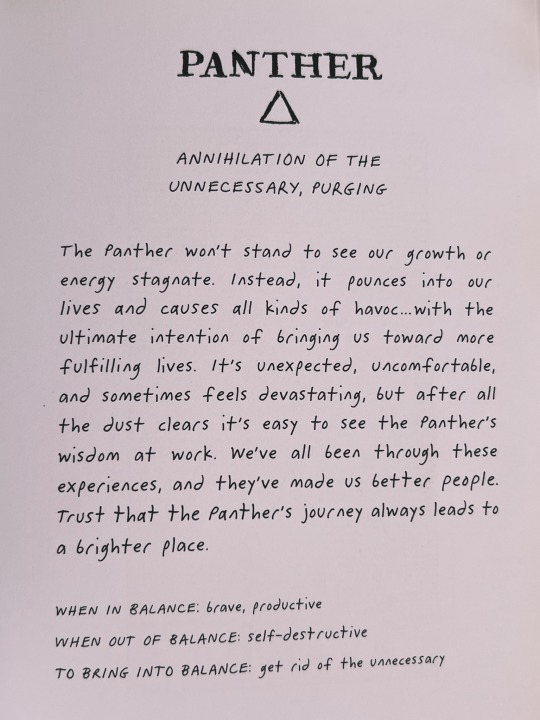 PANTHER
ANNIHILATION OF THE
UNNECESSARY, PURGING
The Panther won't stand to see our growth or
energy stagnate. Instead, it pounces into our
lives and causes all kinds of havoc...with the
ultimate intention of bringing us toward more
fulfilling lives. It's unexpected, uncomfortable,
and sometimes feels devastating, but after all
the dust clears it's easy to see the Panther's
wisdom at work. We've all been through these
experiences, and they've made us better people.
Trust that the Panther's journey always leads to
a brighter place.
WHEN IN BALANCE: brave, productive
WHEN OUT OF BALANCE: self-destructive
TO BRING INTO BALANCE: get rid of the unnecessary